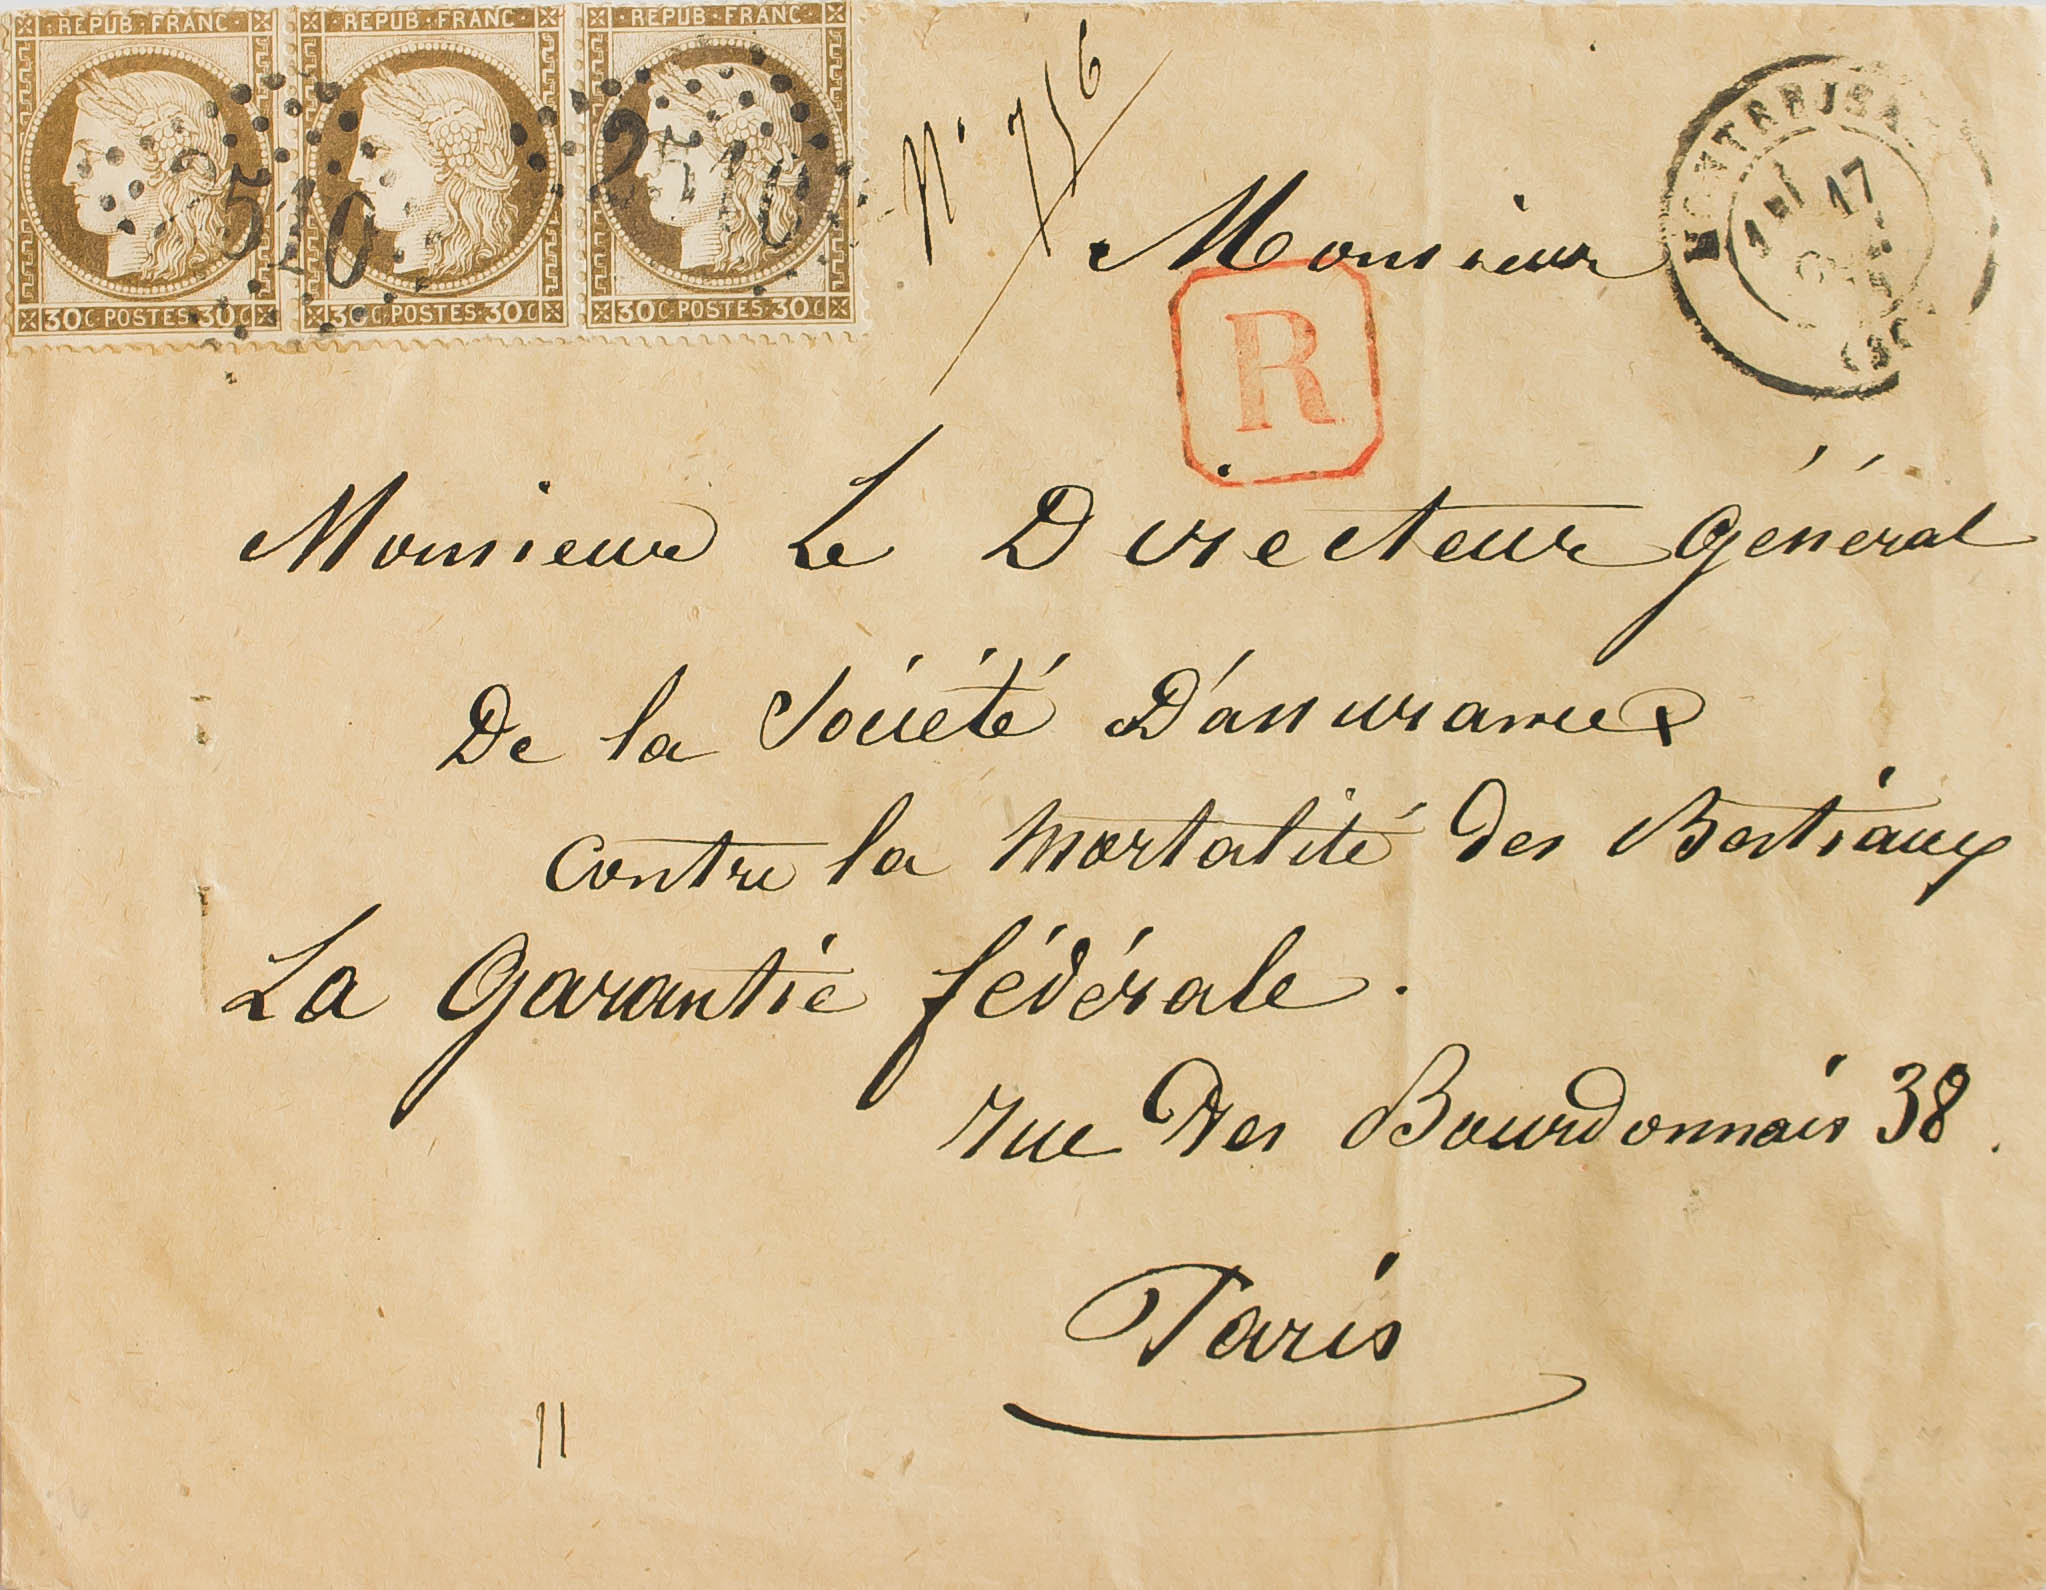 REPUB·FRANC REPUB·FRANC REPUB·FRANC
2510 2510
30C·POSTES·30C 30C·POSTES·30C 30C·POSTES·30C
N° 756
17
Monsieur
R
Monsieur Le Directeur Général
De la Société D'assurances
contre la mortalité des Bestiaux
La Garantie fédérale.
rue Des Bourdonnais 38.
Paris
11